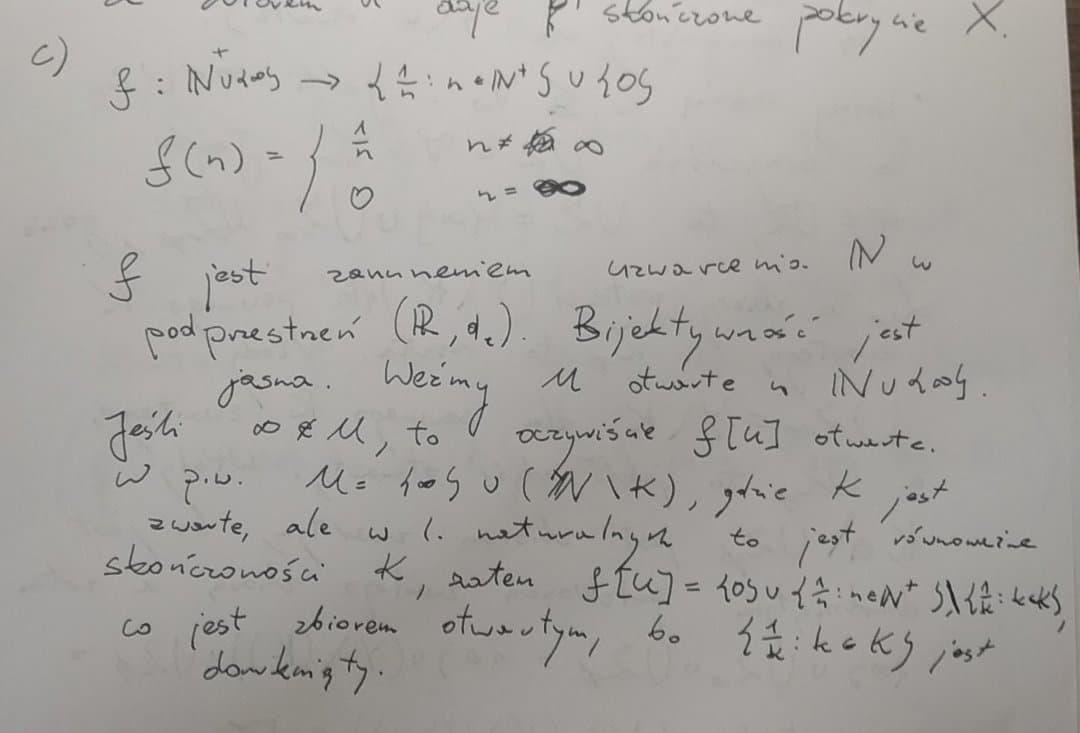 daje skończone pokrycie X.
c)
f : ℕ⁺ ∪ {∞} → { 1/n : n ∈ ℕ⁺ } ∪ {0}
f(n) = { 1/n n ≠ ∞
0 n = ∞
f jest zanurzeniem uzwarcenia ℕ w
podprzestrzeń (ℝ, dₑ). Bijektywność jest
jasna. Weźmy U otwarte w ℕ ∪ {∞}.
Jeśli ∞ ∉ U, to oczywiście f[U] otwarte.
W p.w. U = {∞} ∪ (ℕ \ K), gdzie K jest
zwarte, ale w l. naturalnych to jest równoważne
skończoności K, zatem f[U] = {0} ∪ { 1/n : n ∈ ℕ⁺ } \ { 1/k : k ∈ K },
co jest zbiorem otwartym, bo { 1/k : k ∈ K } jest
domknięty.